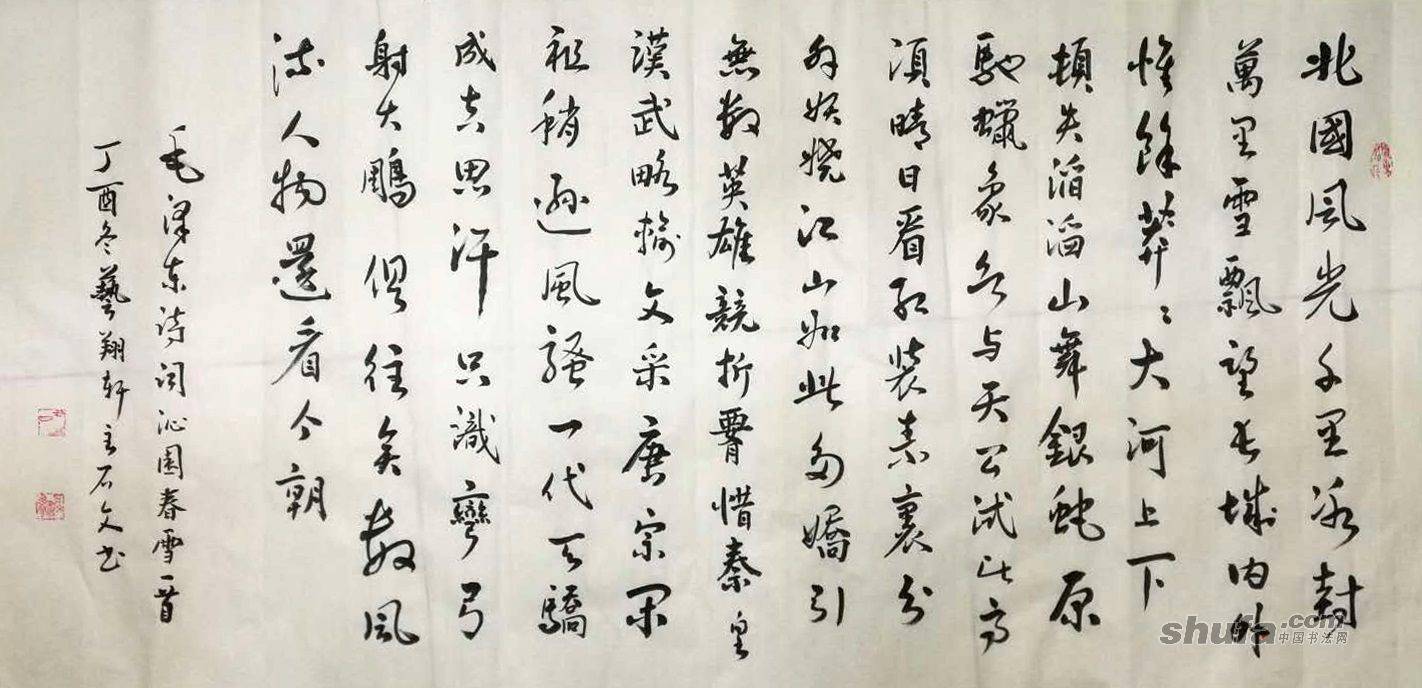 北國风光千里冰封
萬里雪飄望長城內外
惟餘莽〻大河上下
頓失滔滔山舞銀蛇原
馳蠟象欲与天公試比高
須晴日看紅裝素裹分
外妖嬈江山如此多嬌引
無數英雄競折腰惜秦皇
漢武略輸文采唐宗宋
祖稍遜風騷一代天驕
成吉思汗只識彎弓
射大鵰俱往矣數风
流人物還看今朝
毛澤東詩詞沁園春雪一首
丁酉冬藝翔軒主石文书
shufa.com
中国书法网